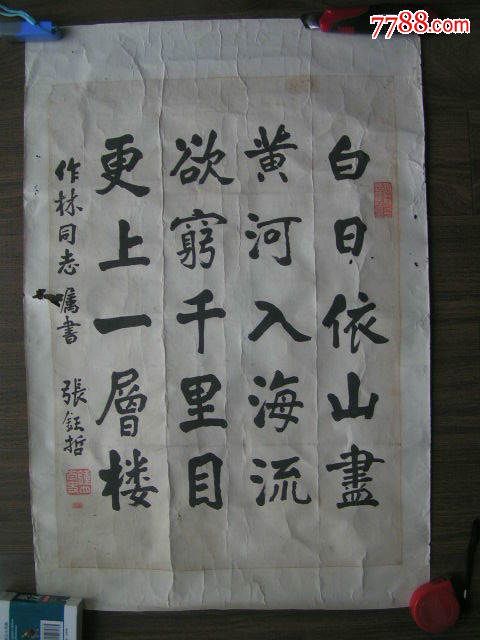 7788.com
白日依山盡
黄河入海流
欲窮千里目
更上一層楼
作林同志属書
張鈺哲